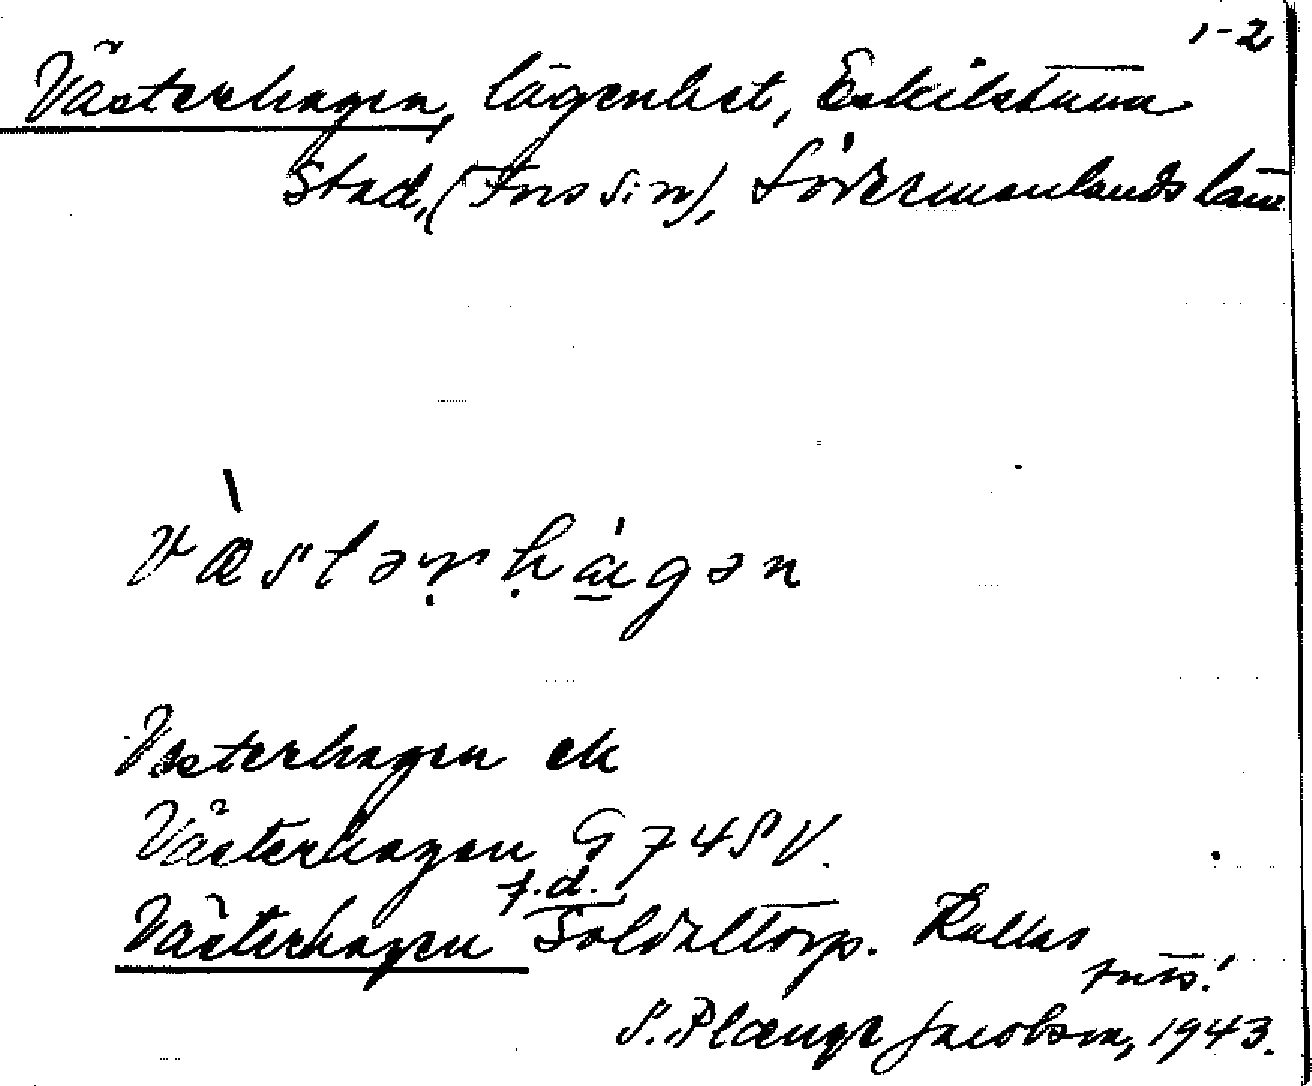 1-2
Västerhagen, lägenhet, Eskilstuna
Stad, (Fors sn), Södermanlands län
Væstərhagən
Vesterhagen ek
Västerhagen G 74 SV.
f.d.
Västerhagen Soldattorp. Kallas
S. Jacobson, 1943.